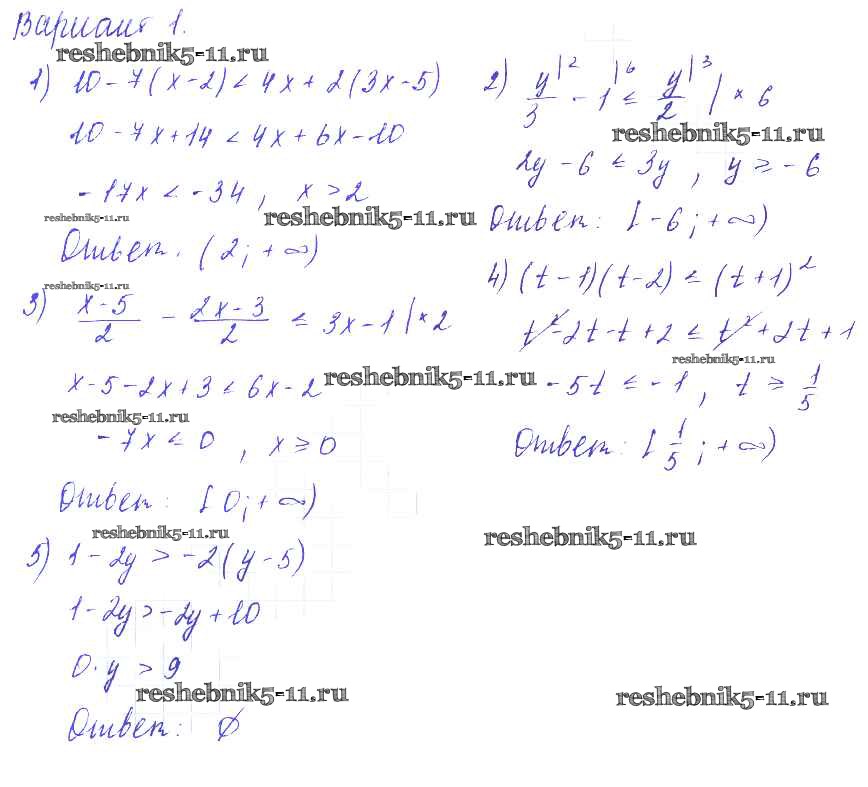 Вариант 1.
reshebnik5-11.ru
1) 10 - 7(x - 2) < 4x + 2(3x - 5)
10 - 7x + 14 < 4x + 6x - 10
- 17x < - 34, x > 2
reshebnik5-11.ru
reshebnik5-11.ru
Ответ: (2; + ∞)
2) y/3 |² - 1 |⁶ ≤ y/2 |³ | × 6
reshebnik5-11.ru
2y - 6 ≤ 3y, y ≥ - 6
Ответ: [- 6; + ∞)
reshebnik5-11.ru
3) (x - 5)/2 - (2x - 3)/2 ≤ 3x - 1 | × 2
x - 5 - 2x + 3 ≤ 6x - 2
reshebnik5-11.ru
reshebnik5-11.ru
- 7x ≤ 0, x ≥ 0
Ответ: [0; + ∞)
4) (t - 1)(t - 2) ≤ (t + 1)²
t² - 2t - t + 2 ≤ t² + 2t + 1
reshebnik5-11.ru
- 5t ≤ - 1, t ≥ 1/5
Ответ: [1/5; + ∞)
reshebnik5-11.ru
reshebnik5-11.ru
5) 1 - 2y > - 2(y - 5)
1 - 2y > - 2y + 10
0 · y > 9
reshebnik5-11.ru
reshebnik5-11.ru
Ответ: ∅